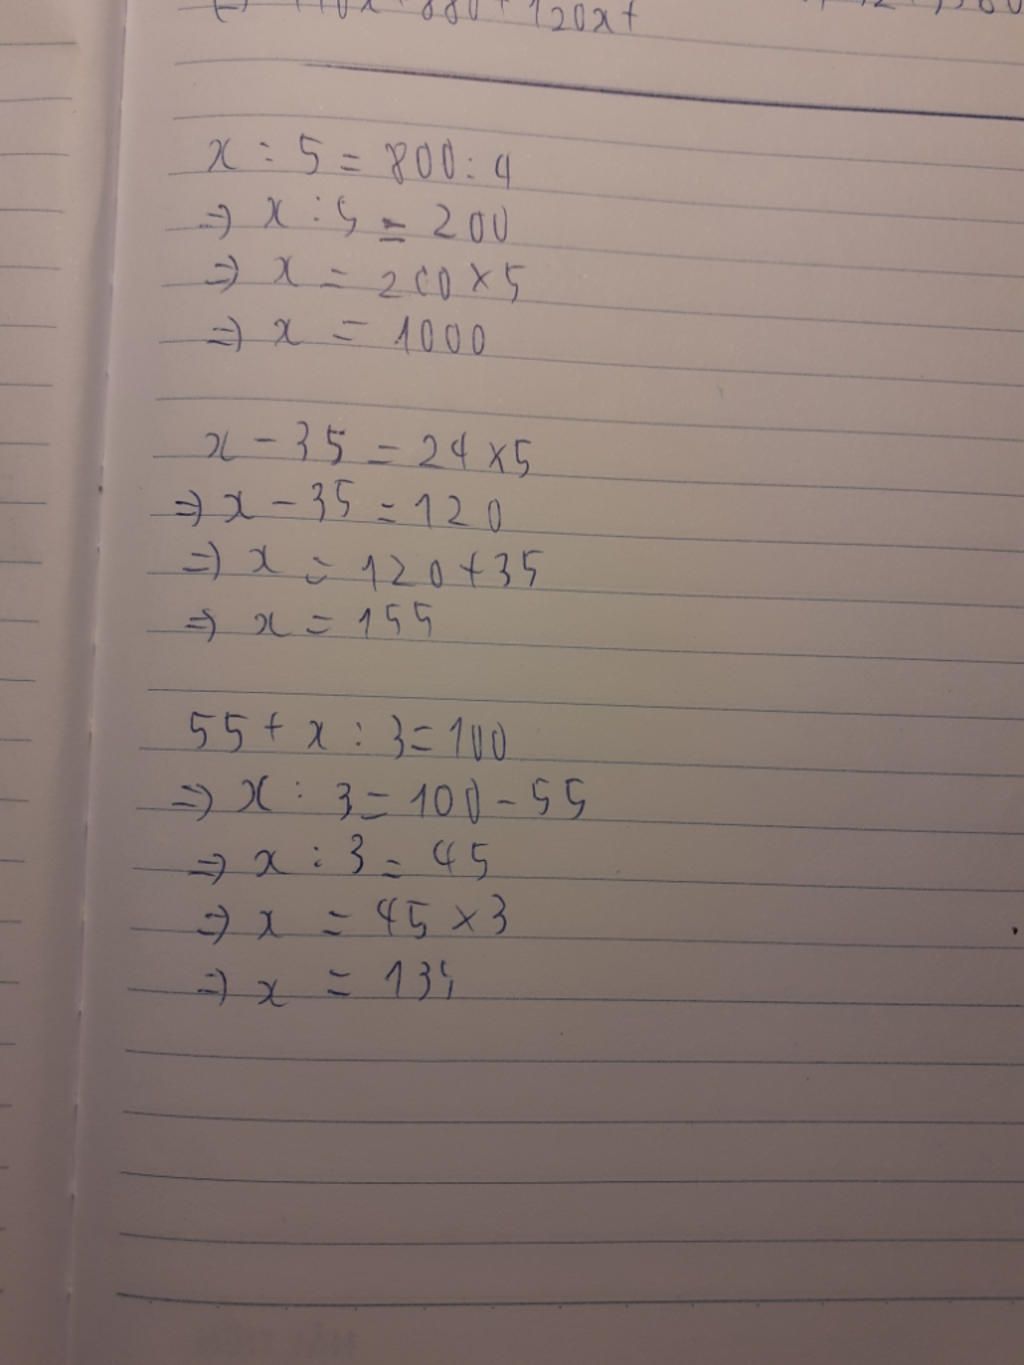 880 + 120x +
x : 5 = 800 : 4
=> x : 5 = 200
=> x = 200 x 5
=> x = 1000
x - 35 = 24 x 5
=> x - 35 = 120
=> x = 120 + 35
=> x = 155
55 + x : 3 = 100
=> x : 3 = 100 - 55
=> x : 3 = 45
=> x = 45 x 3
=> x = 135